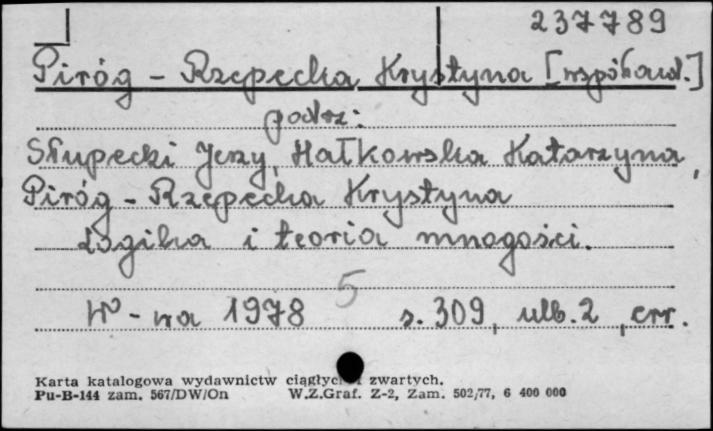 237789
Piróg - Rzepecka Krystyna [współaut.]
patrz:
Słupecki Jerzy, Hałkowska Katarzyna,
Piróg - Rzepecka Krystyna
Logika i teoria mnogości.
5
W-wa 1978 s. 309, ulb. 2, err.
Karta katalogowa wydawnictw ciągłych i zwartych.
Pu-B-144 zam. 567/DW/On W.Z.Graf. Z-2, Zam. 502/77, 6 400 000